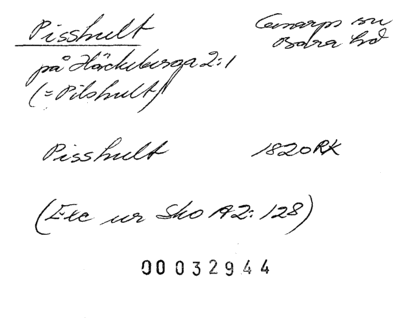 Pisshult
Genarps sn
Bara hd
på Häckeberga 2:1
(= Pilshult)
Pisshult 1820 RK
(Exc ur Sko A2: 128)
00032944